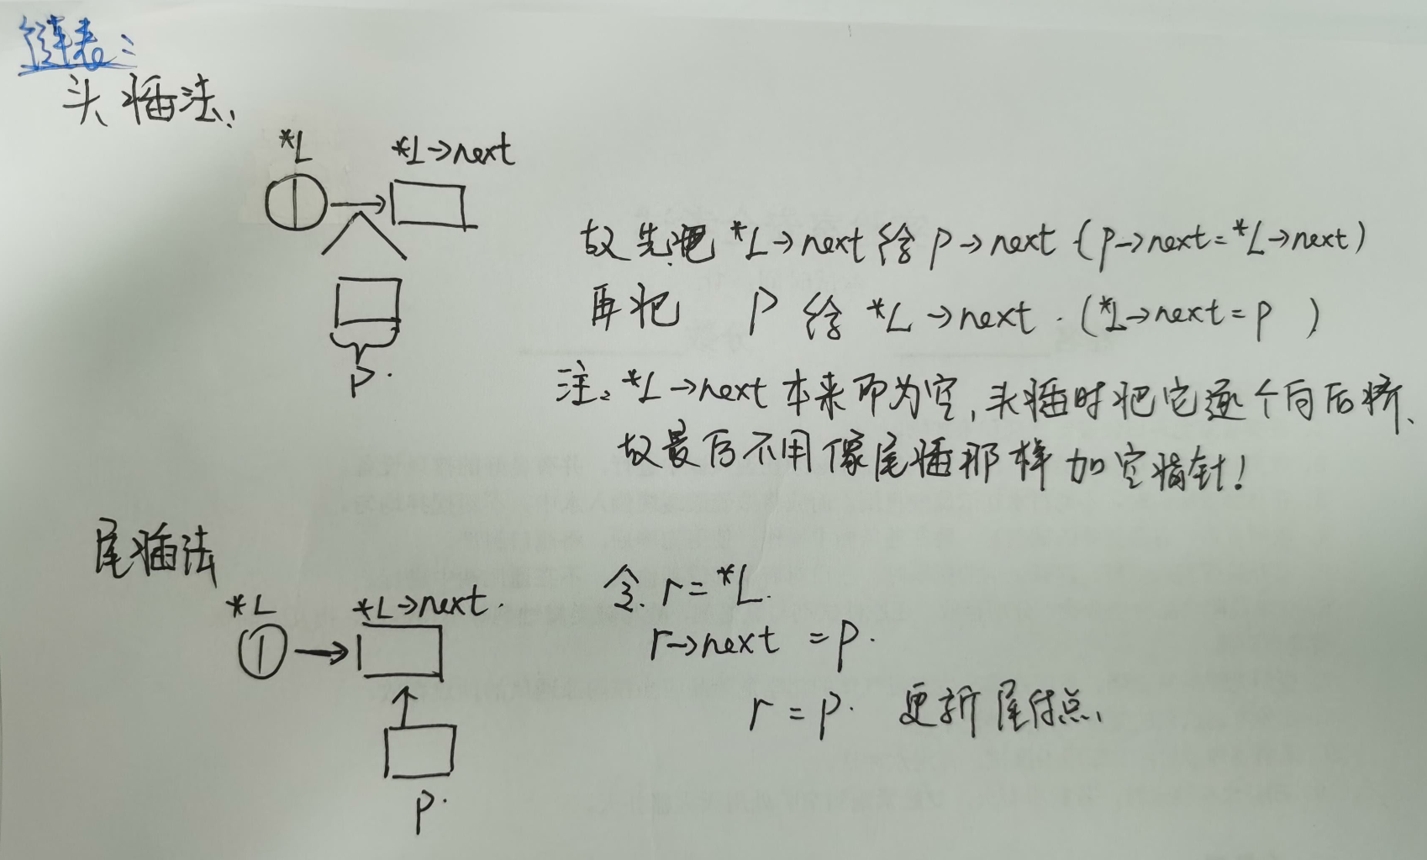 链表:
头插法:
*L
*L→next
p.
故先把 *L→next 给 p→next (p→next=*L→next)
再把 p 给 *L→next. (*L→next=p)
注:*L→next本来即为空,头插时把它逐个向后挤、
故最后不用像尾插那样加空指针!
尾插法
*L
*L→next.
p.
令 r=*L.
r→next =p.
r=p. 更新尾结点、